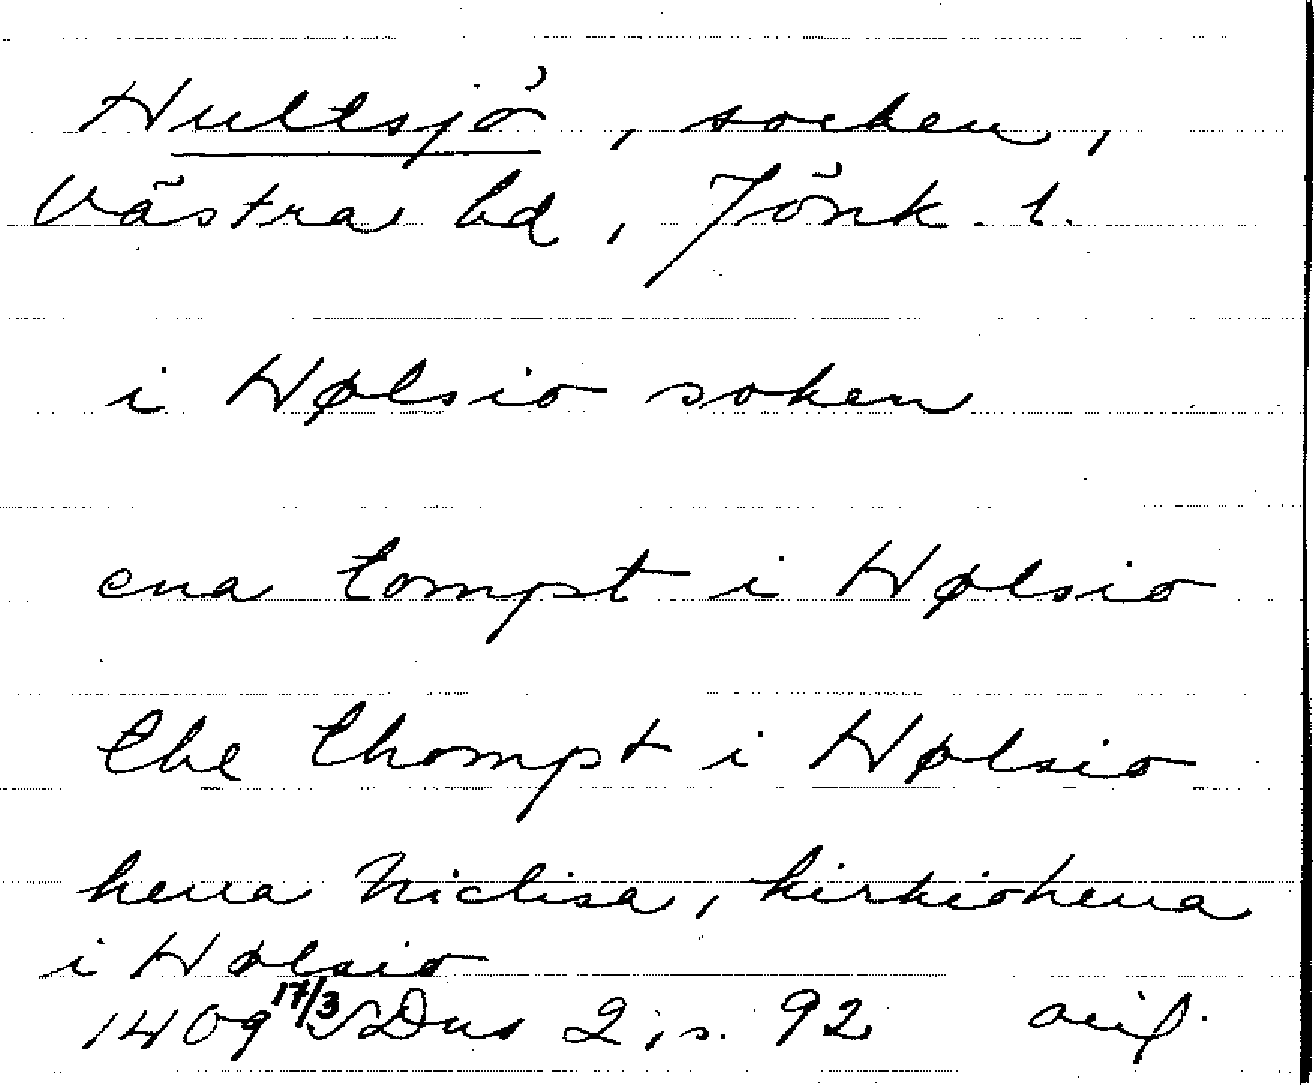 Hultsjö, socken,
Västra hd, Jönk. l.
i Hølsio soken
ena tompt i Hølsio
the thompt i Hølsio
herra Niclisa, kirkioherra
i Hølsio
1409 17/3 SDns 2, s. 92